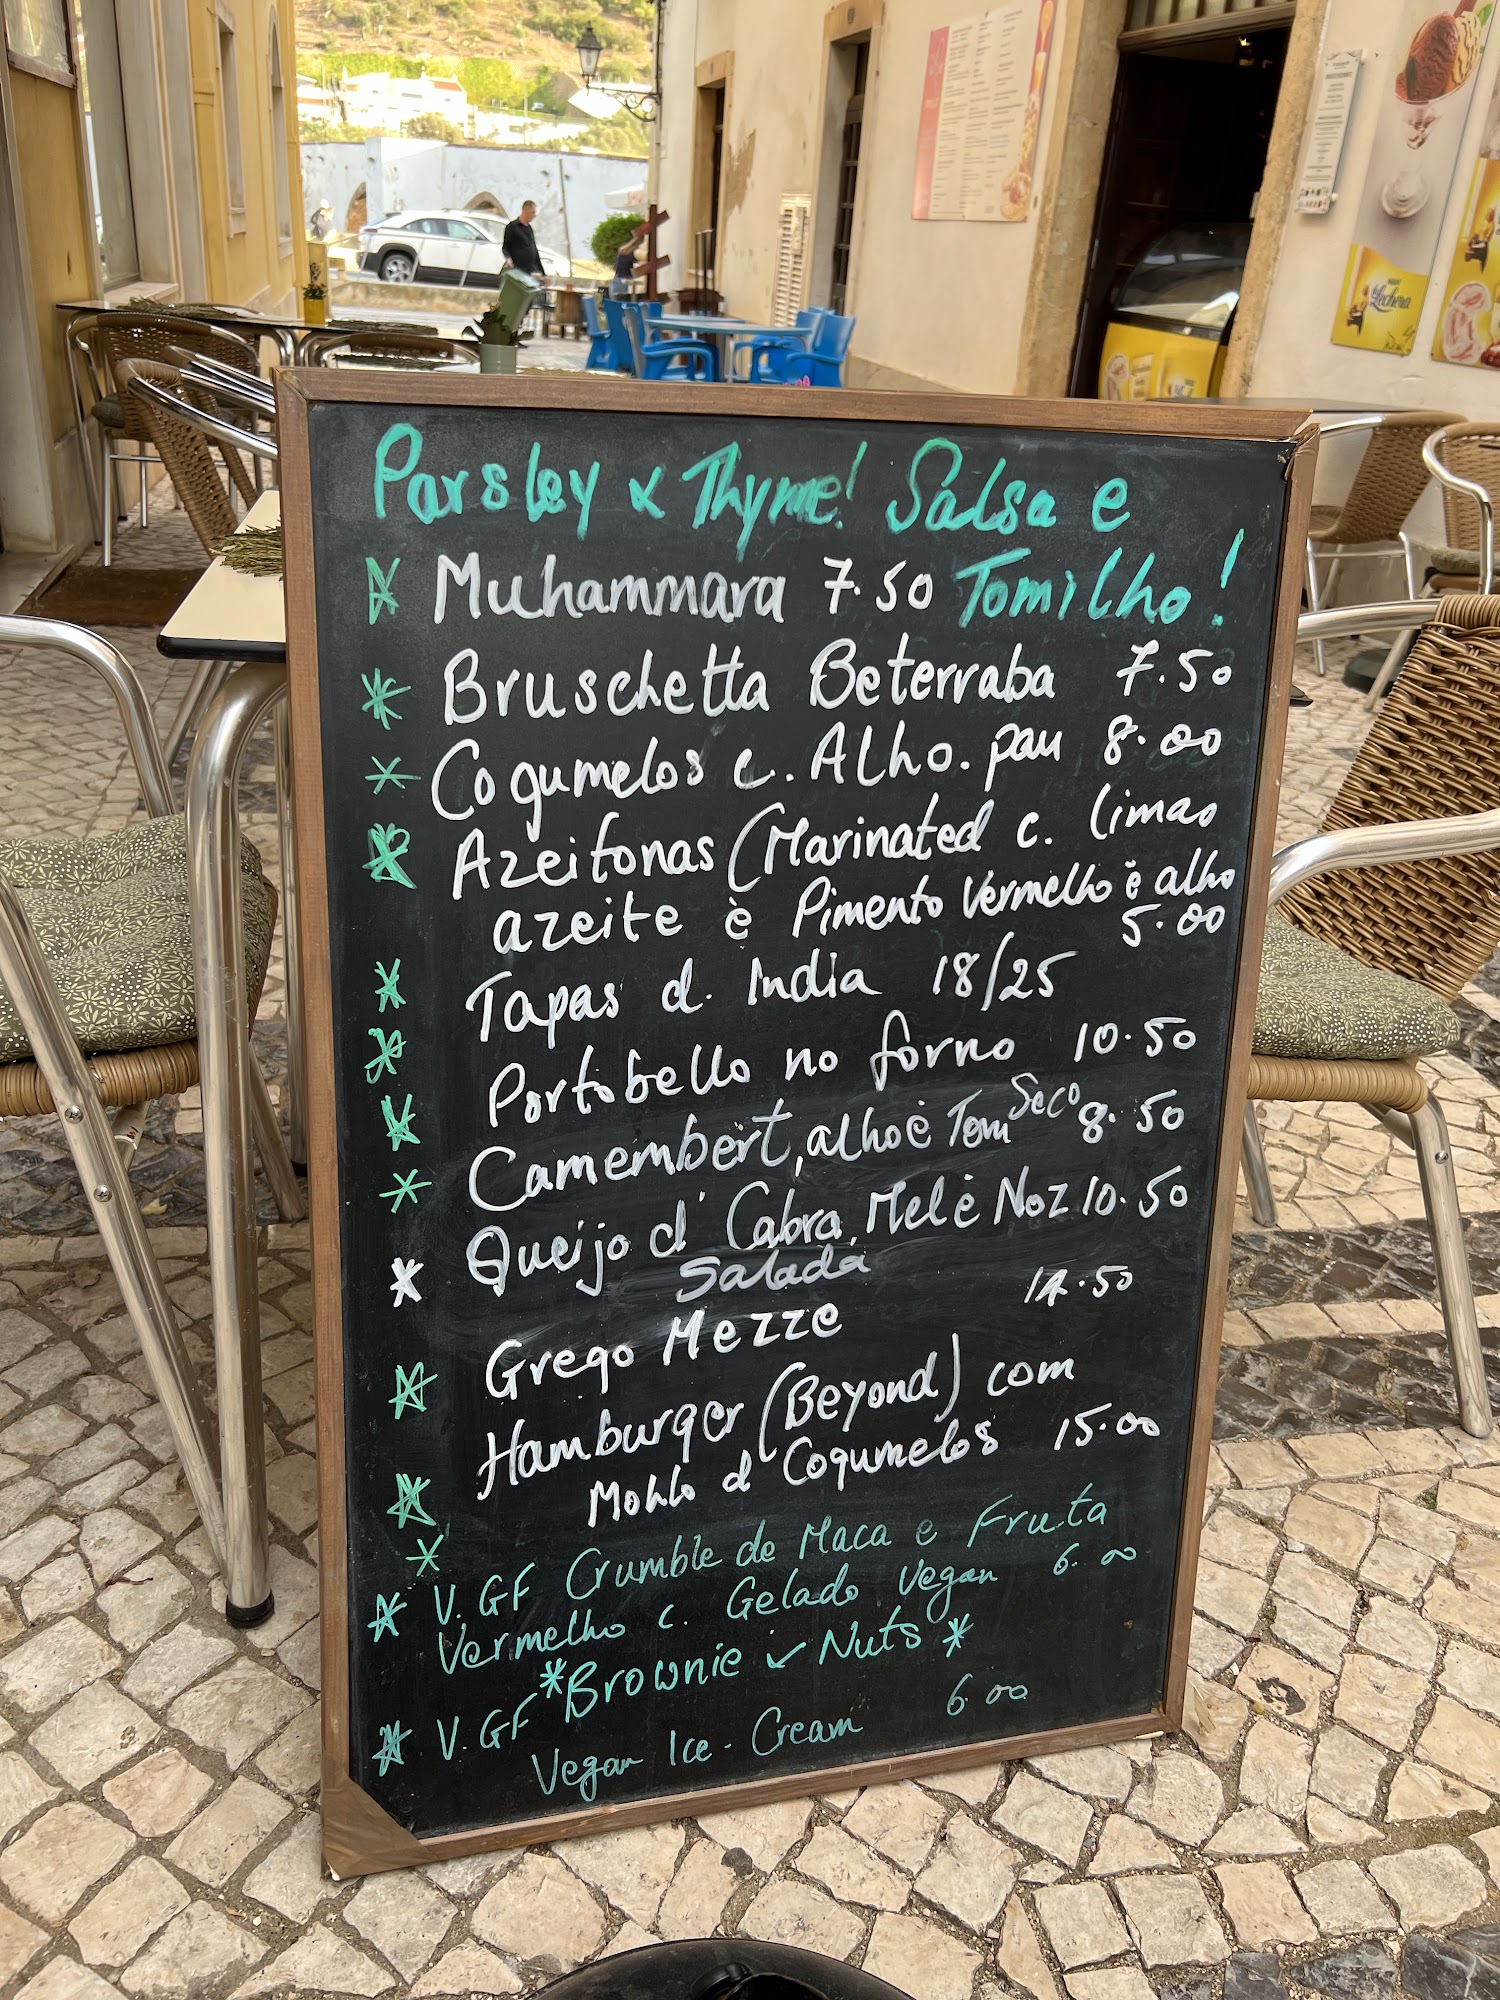 Parsley & Thyme! Salsa e
Tomilho!
Muhammara 7.50
Bruschetta Beterraba 7.50
Cogumelos c. Alho. pau 8.00
Azeitonas (Marinated c. limao
azeite è Pimento Vermelho è alho
5.00
Tapas d. India 18/25
Portobello no forno 10.50
Camembert, alho è Tom Seco 8.50
Queijo d' Cabra, Mel è Noz 10.50
Salada
Grego Mezze 14.50
Hamburger (Beyond) com
Mohlo d Cogumelos 15.00
V. GF Crumble de Maca e Fruta
Vermelho c. Gelado Vegan 6.00
V. GF *Brownie ✓ Nuts *
Vegan Ice-Cream 6.00
La Lechera